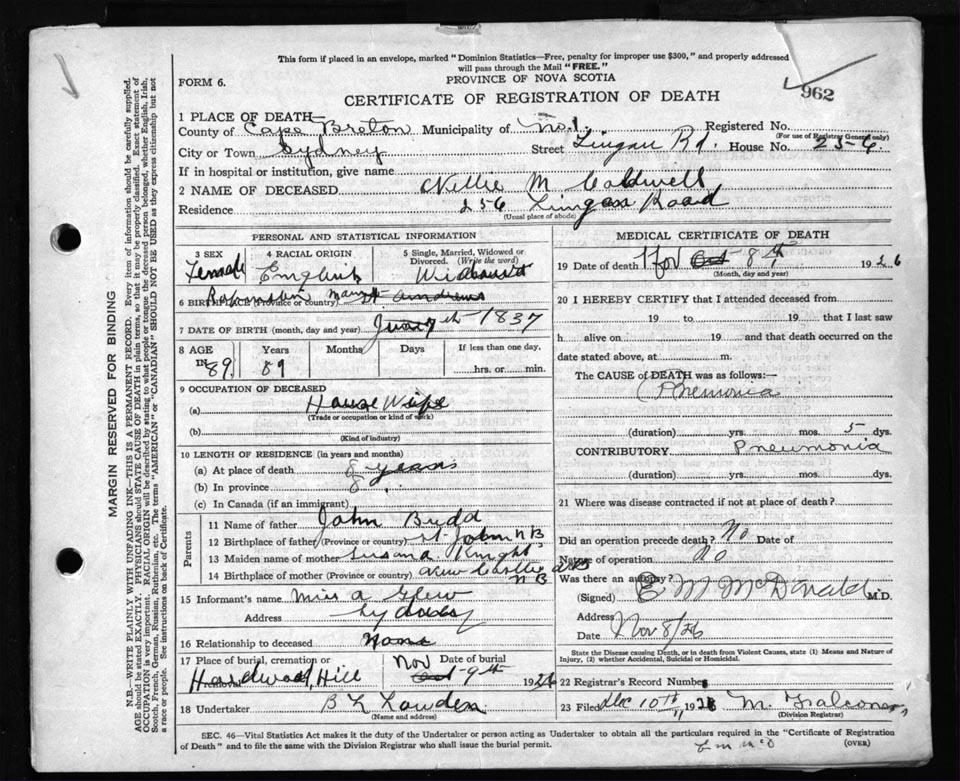 This form if placed in an envelope, marked "Dominion Statistics—Free, penalty for improper use $300," and properly addressed
will pass through the Mail "FREE."
FORM 6.
PROVINCE OF NOVA SCOTIA
CERTIFICATE OF REGISTRATION OF DEATH
962
1 PLACE OF DEATH
County of Cape Breton Municipality of No. 1 Registered No.
(For use of Registrar General only)
City or Town Sydney Street Lingan Rd. House No. 256
If in hospital or institution, give name
2 NAME OF DECEASED Nellie M Caldwell
Residence 256 Lingan Road
(Usual place of abode)
PERSONAL AND STATISTICAL INFORMATION
3 SEX 4 RACIAL ORIGIN 5 Single, Married, Widowed or Divorced. (Write the word)
Female English
6 BIRTHPLACE (Province or country)
7 DATE OF BIRTH (month, day and year) 1837
8 AGE Years Months Days If less than one day.
IN 89 89 hrs. or min.
9 OCCUPATION OF DECEASED
(a) House Wife
(Trade or occupation or kind of work)
(b)
(Kind of industry)
10 LENGTH OF RESIDENCE (in years and months)
(a) At place of death 8 years
(b) In province 8
(c) In Canada (if an immigrant)
Parents
11 Name of father John Budd
12 Birthplace of father (Province or country) St John N B
13 Maiden name of mother Susana Knight
14 Birthplace of mother (Province or country) New Castle N B
15 Informant's name Miss A Glew
Address Sydney
16 Relationship to deceased None
17 Place of burial, cremation or removal Date of burial
Hardwood Hill Nov Oct 9th 1926
18 Undertaker
(Name and address)
MEDICAL CERTIFICATE OF DEATH
19 Date of death Nov Oct 8th 1926
(Month, day and year)
20 I HEREBY CERTIFY that I attended deceased from
19 to 19 that I last saw
h alive on 19 and that death occurred on the
date stated above, at m.
The CAUSE of DEATH was as follows:—
Pnemonia
(duration) yrs. mos. 5 dys.
CONTRIBUTORY Pneumonia
(duration) yrs. mos. dys.
21 Where was disease contracted if not at place of death?
Did an operation precede death? No Date of
Nature of operation No
Was there an autopsy?
(Signed) E M McDonald M.D.
Address
Date Nov 8/26
State the Disease causing Death, or in death from Violent Causes, state (1) Means and Nature of
Injury, (2) whether Accidental, Suicidal or Homicidal.
22 Registrar's Record Number
23 Filed Dec 10th 192
(Division Registrar)
SEC. 46—Vital Statistics Act makes it the duty of the Undertaker or person acting as Undertaker to obtain all the particulars required in the "Certificate of Registration
of Death" and to file the same with the Division Registrar who shall issue the burial permit.
(OVER)
MARGIN RESERVED FOR BINDING
N.B.—WRITE PLAINLY WITH UNFADING INK—THIS IS A PERMANENT RECORD. Every item of information should be carefully supplied.
AGE should be stated EXACTLY. PHYSICIANS should STATE CAUSE OF DEATH in plain terms, so that it may be properly classified. Exact statement of
OCCUPATION is very important. RACIAL ORIGIN will be described by stating to what people or tongue the deceased person belonged, whether English, Irish,
Scotch, French, German, Russian, Ruthenian, etc. The terms "AMERICAN" or "CANADIAN" SHOULD NOT BE USED as they express citizenship but not
a race or people. See instructions on back of Certificate.